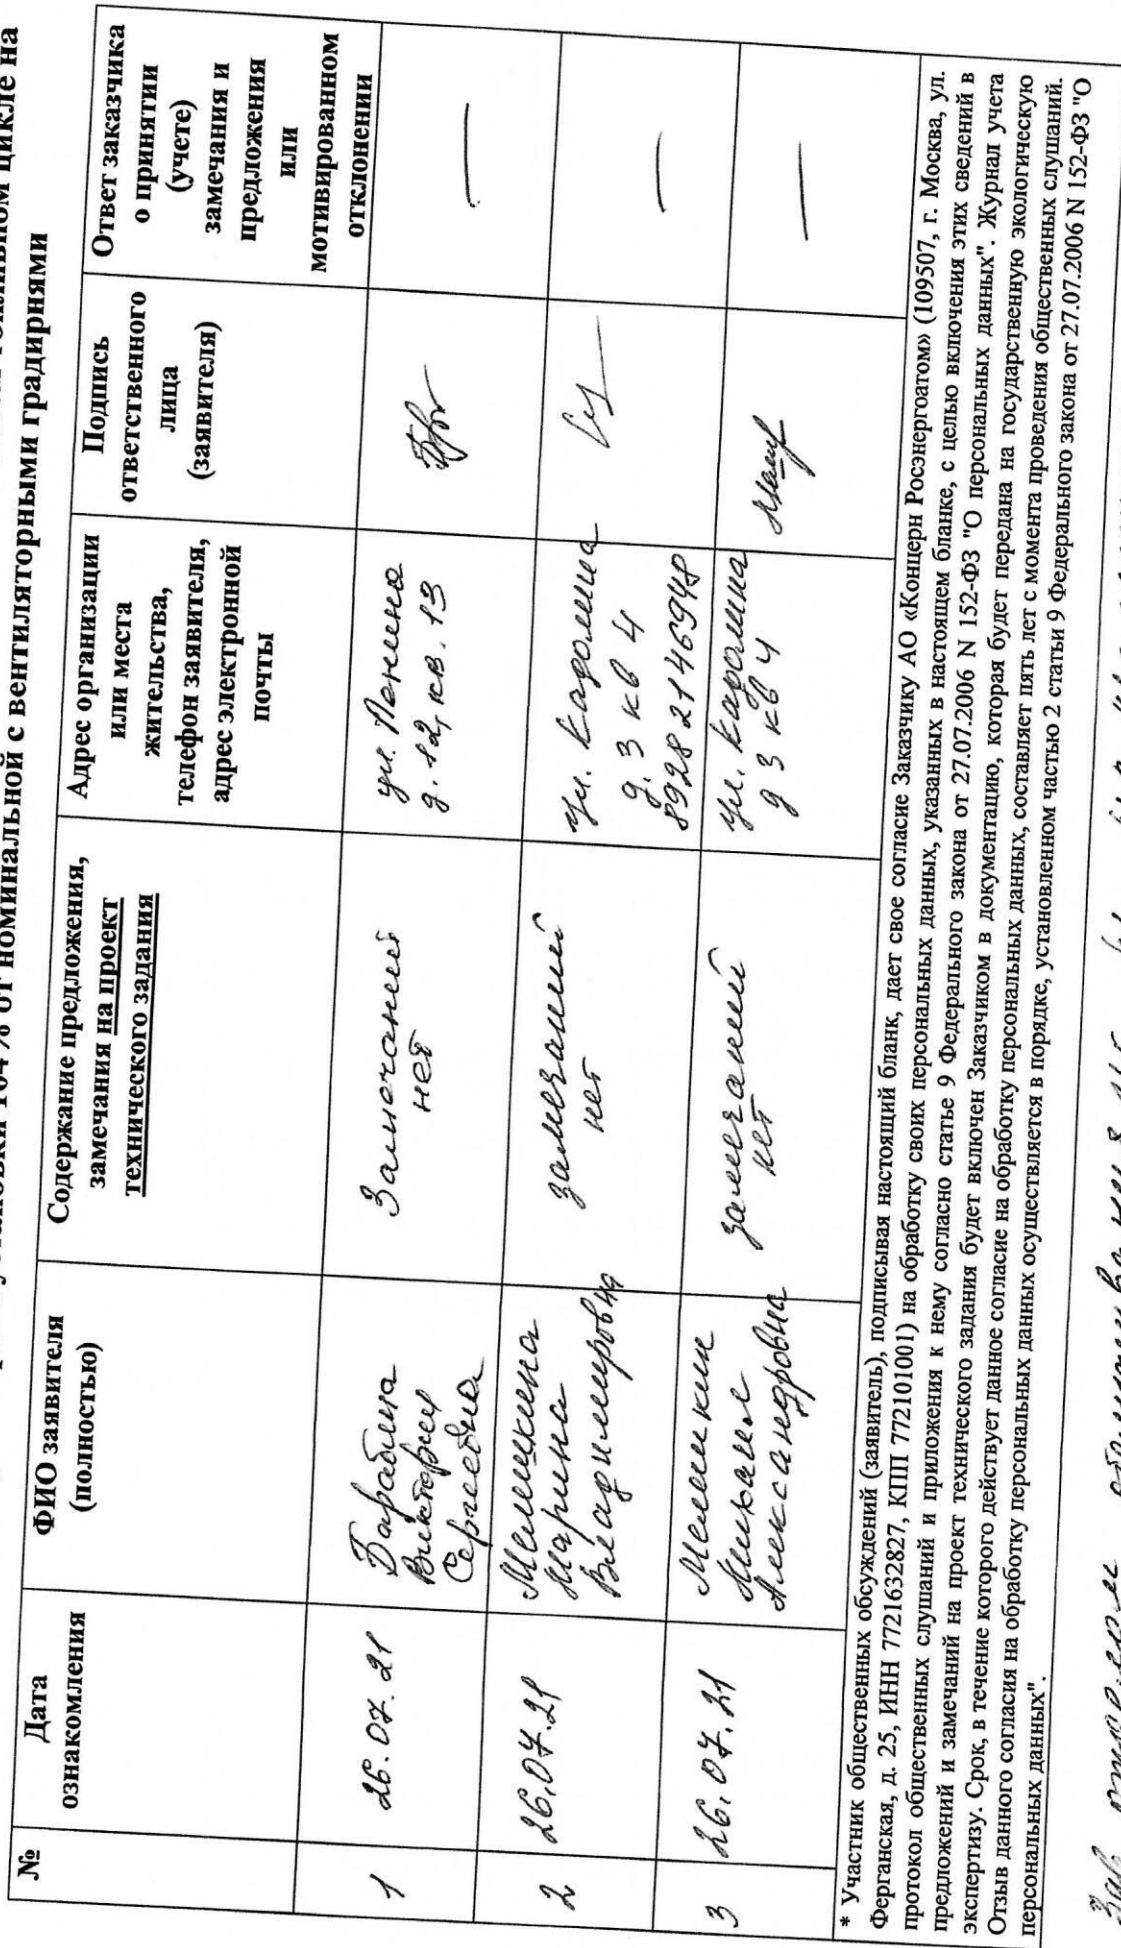 установки 104% от номинальной с вентиляторными градирнями
№
Дата
ознакомления
ФИО заявителя
(полностью)
Содержание предложения,
замечания на проект
технического задания
Адрес организации
или места
жительства,
телефон заявителя,
адрес электронной
почты
Подпись
ответственного
лица
(заявителя)
Ответ заказчика
о принятии
(учете)
замечания и
предложения
или
мотивированном
отклонении
1
26.07.21
Барабина
Виктория
Сергеевна
Замечаний
нет
ул. Ленина
д. 12, кв. 13
—
2
26.07.21
Мелешкина
Марина
Владимировна
замечаний
нет
ул. Кадолина
д. 3 кв 4
89282146948
—
3
26.07.21
Мелешкин
Михаил
Александровна
замечаний
нет
ул. Кадолина
д 3 кв 4
—
* Участник общественных обсуждений (заявитель), подписывая настоящий бланк, дает свое согласие Заказчику АО «Концерн Росэнергоатом» (109507, г. Москва, ул.
Ферганская, д. 25, ИНН 7721632827, КПП 772101001) на обработку своих персональных данных, указанных в настоящем бланке, с целью включения этих сведений в
протокол общественных слушаний и приложения к нему согласно статье 9 Федерального закона от 27.07.2006 N 152-ФЗ "О персональных данных". Журнал учета
предложений и замечаний на проект технического задания будет включен Заказчиком в документацию, которая будет передана на государственную экологическую
экспертизу. Срок, в течение которого действует данное согласие на обработку персональных данных, составляет пять лет с момента проведения общественных слушаний.
Отзыв данного согласия на обработку персональных данных осуществляется в порядке, установленном частью 2 статьи 9 Федерального закона от 27.07.2006 N 152-ФЗ "О
персональных данных".
Зав. отделом обслуживания